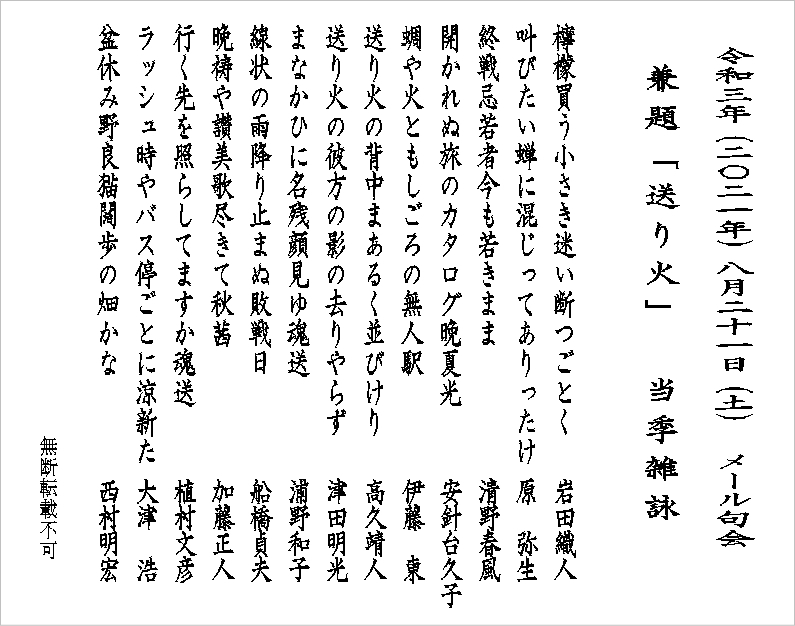 令和三年(二〇二一年)八月二十一日(土) メール句会
兼題「送り火」 当季雑詠
檸檬買う小さき迷い断つごとく 岩田織人
叫びたい蝉に混じってありったけ 原 弥生
終戦忌若者今も若きまま 清野春風
開かれぬ旅のカタログ晩夏光 安針台久子
蜩や火ともしごろの無人駅 伊藤 東
送り火の背中まあるく並びけり 高久靖人
送り火の彼方の影の去りやらず 津田明光
まなかひに名残顔見ゆ魂送 浦野和子
線状の雨降り止まぬ敗戦日 船橋貞夫
晩祷や讃美歌尽きて秋茜 加藤正人
行く先を照らしてますか魂送 植村文彦
ラッシュ時やバス停ごとに涼新た 大津 浩
盆休み野良猫闊歩の畑かな 西村明宏
無断転載不可